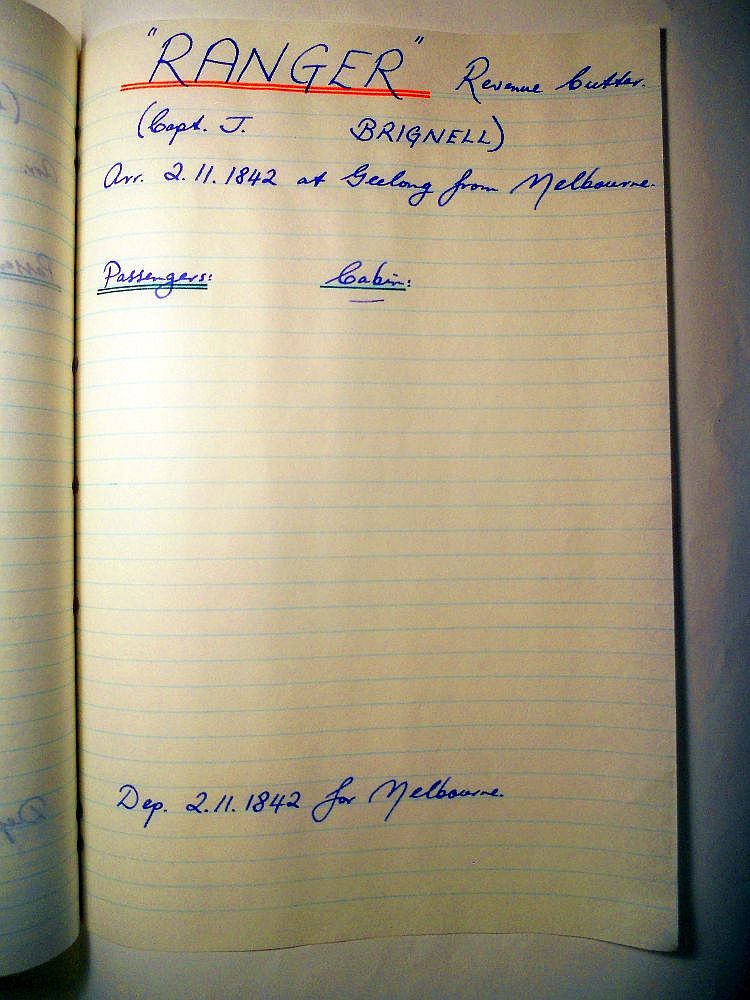 "RANGER" Revenue Cutter.
(Capt. J. BRIGNELL)
Arr. 2.11.1842 at Geelong from Melbourne.
Passengers: Cabin:
Dep. 2.11.1842 for Melbourne.